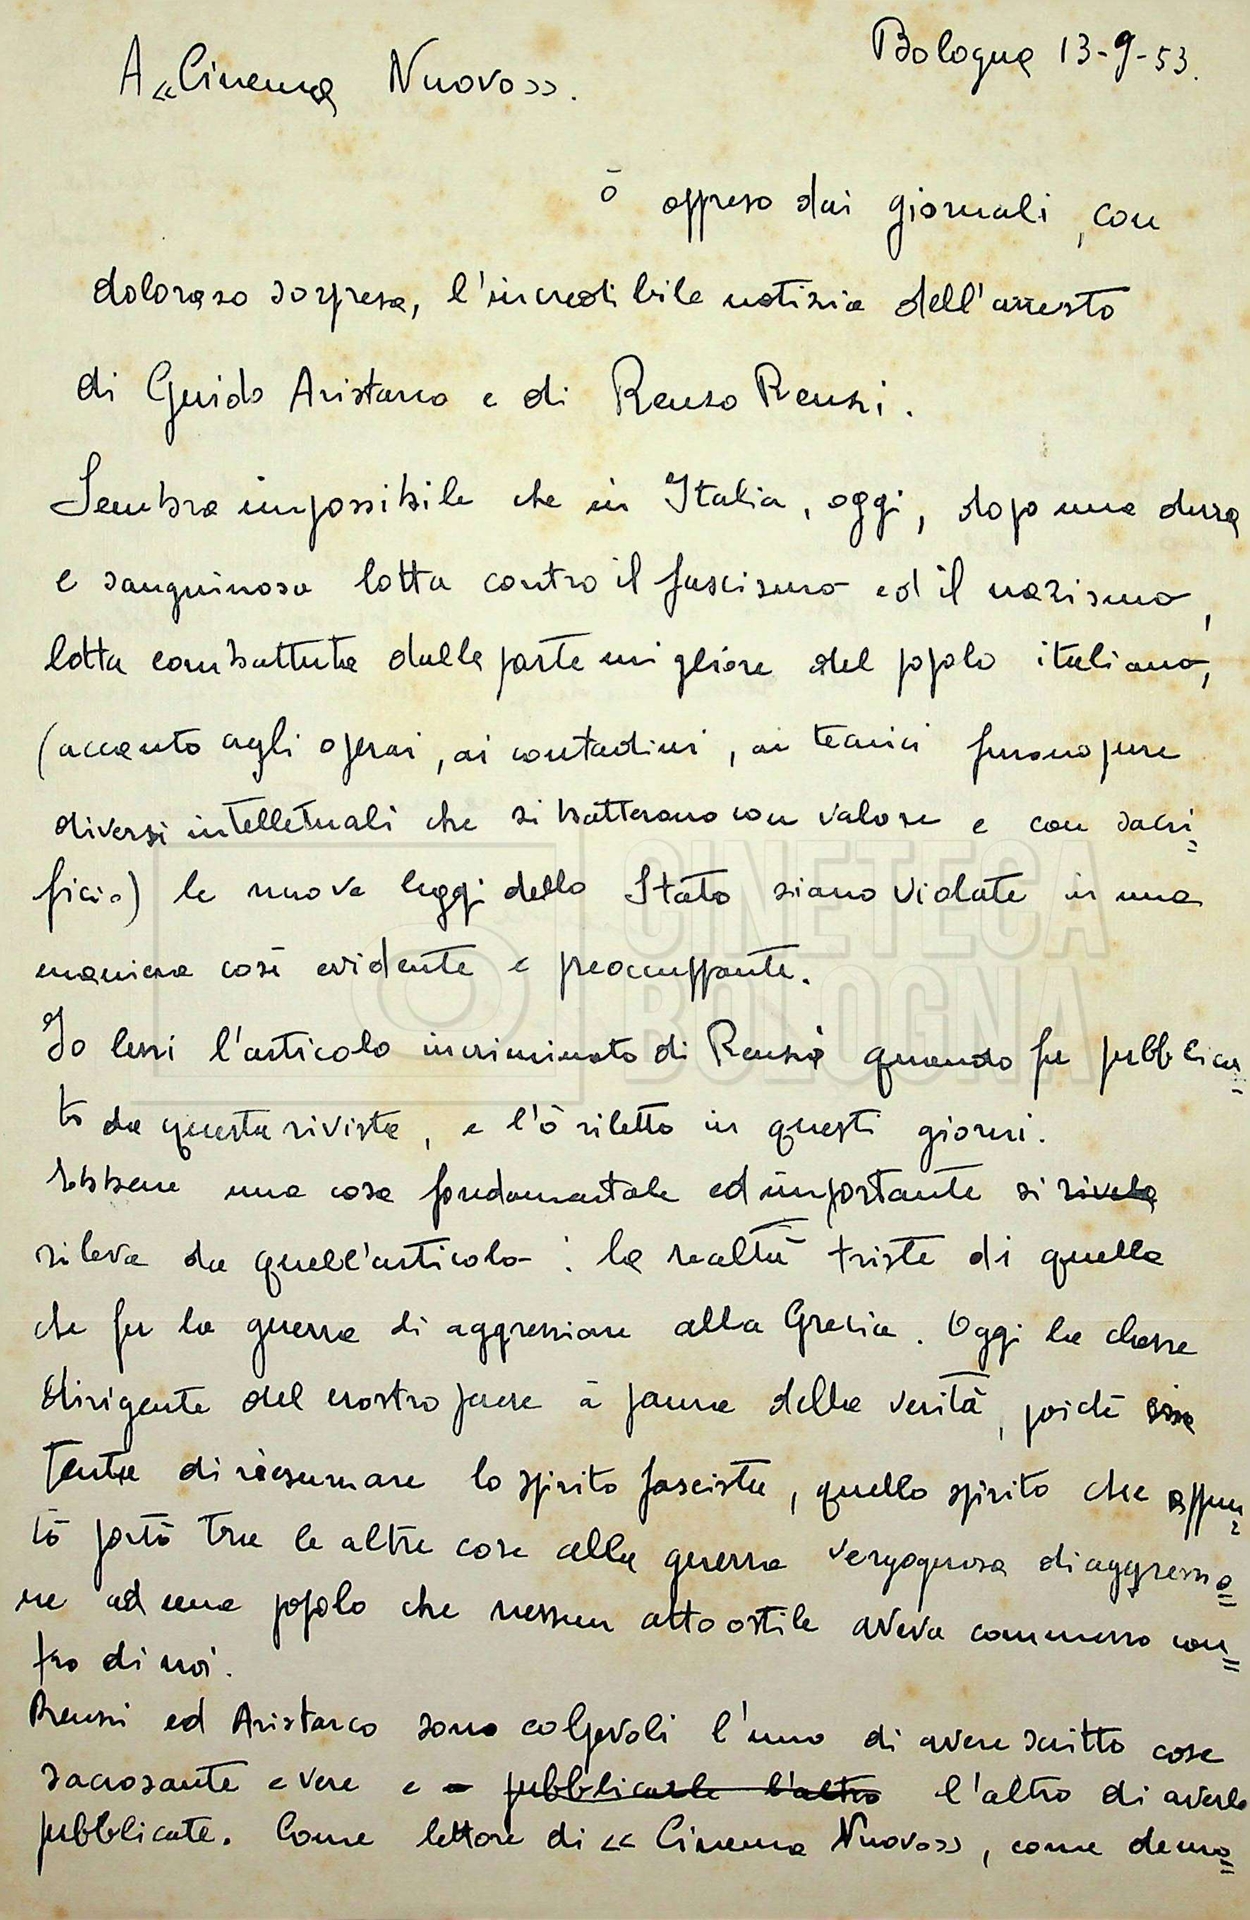 Bologna 13-9-53.
A «Cinema Nuovo».
ò appreso dai giornali, con
dolorosa sorpresa, l'incredibile notizia dell'arresto
di Guido Aristarco e di Renzo Renzi.
Sembra impossibile che in Italia, oggi, dopo una dura
e sanguinosa lotta contro il fascismo ed il nazismo,
lotta combattuta dalla parte migliore del popolo italiano,
(accanto agli operai, ai contadini, ai tecnici furono pure
diversi intelletuali che si batterono con valore e con sacri=
ficio) le nuove leggi dello Stato siano violate in una
maniera così evidente e preoccuppante.
Io lessi l'articolo incriminato di Renzi quando fu pubblica=
to da questa rivista, e l'ò riletto in questi giorni.
Ebbene una cosa fondamentale ed importante si rivela
rileva da quell'articolo: la realtà triste di quella
che fu la guerra di aggressione alla Grecia. Oggi la classe
dirigente del nostro paese à paura della verità, poichè essa
tenta di riesumare lo spirito fascista, quello spirito che appun=
tò portò tra le altre cose alla guerra vergognosa di aggressio=
ne ad una popolo che nessun atto ostile aveva commesso con=
tro di noi.
Renzi ed Aristarco sono colpevoli l'uno di avere scritto cose
sacrosante e vere e pubblicarle l'altro l'altro di averle
pubblicate. Come lettore di «Cinema Nuovo», come demo=
CINETECA
BOLOGNA